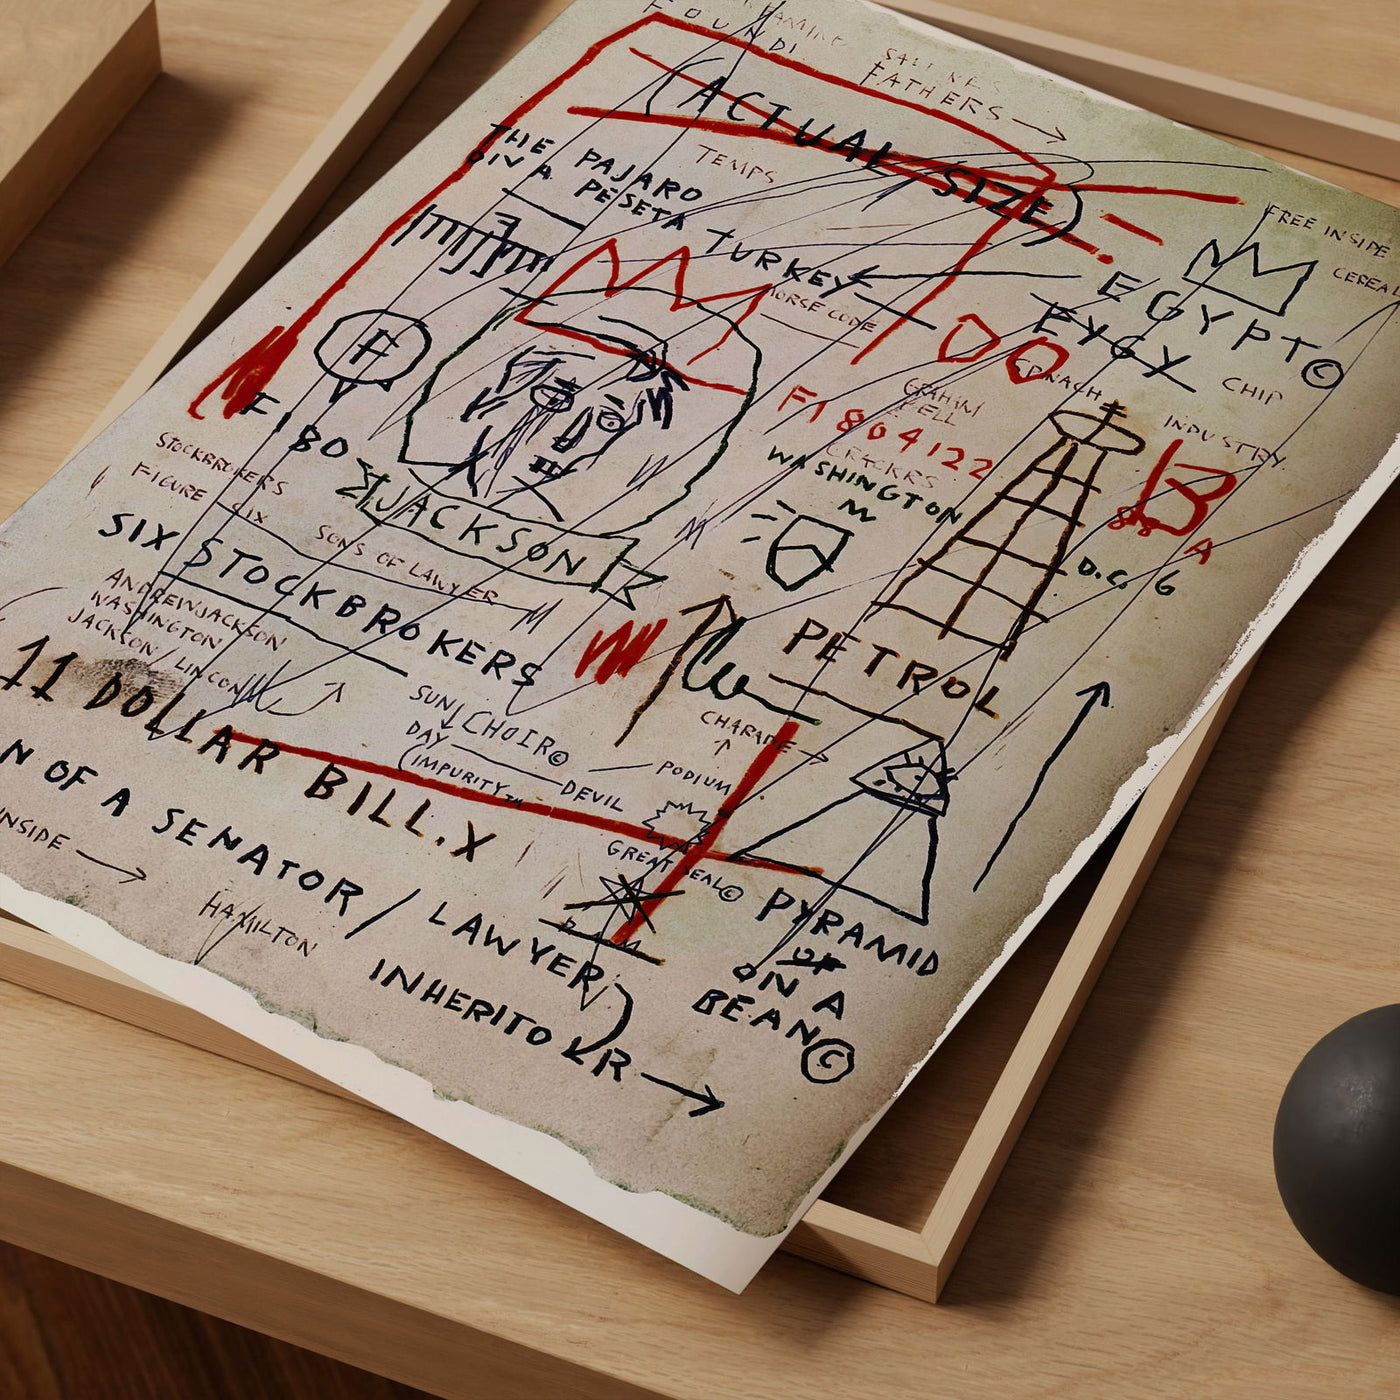 FOUNDI
FATHERS
(ACTUAL SIZE)
THE PAJARO
ON A PESETA
TEMPS
TURKEY
MORSE CODE
FREE INSIDE
CEREAL
EGYPT©
EYGY
CHIP
SPINACH
INDUSTRY.
GRAHAM
BELL
F1804122
CRACKRS
WASHINGTON
F
FIBO
JACKSON
B
88
A
D.C. 6
STOCKBROKERS
FIGURE SIX
SONS OF LAWYER
SIX STOCKBROKERS
ANDREW JACKSON
WASHINGTON
JACKSON/LINCON
PETROL
11 DOLLAR BILL.X
SUN
DAY
CHOIR©
(IMPURITY™
DEVIL
CHARADE
PODIUM
GREAT SEAL©
N OF A SENATOR/LAWYER
INSIDE
HAMILTON
INHERITO R
PYRAMID
OF
ON A
BEAN©